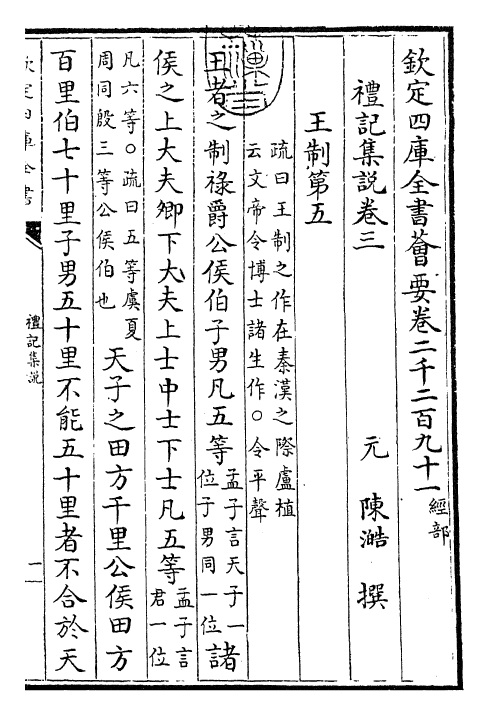 欽定四庫全書薈要卷二千二百九十一
經部
禮記集說卷三
元 陳澔 撰
王制第五
疏曰王制之作在秦漢之際盧植
云文帝令博士諸生作○令平聲
王者之制祿爵公侯伯子男凡五等
孟子言天子一
位子男同一位
諸
侯之上大夫卿下大夫上士中士下士凡五等
孟子言
君一位
凡六等○疏曰五等虞夏
周同殷三等公侯伯也
天子之田方千里公侯田方
百里伯七十里子男五十里不能五十里者不合於天
欽定四庫全書
禮記集說
一